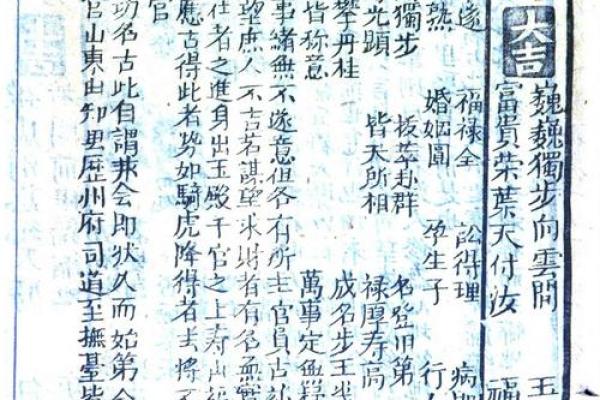 大吉
巍巍獨步向雲間 玉
富貴榮華天付汝 福
遂 福禄全 訟得理 病
熟 婚姻圓 孕生子 行人
獨步 拔萃 群 名登 第
光顕 皆天所相 禄厚壽高
攀丹桂 成名步玉
皆称意 萬事定無
事緒無不遂意但各有所主官員占
望庶人不吉若謀望求財者有名無
在者之進身出玉殿千官之上壽山
應占得此者勢如騎虎降得者去將
官
功名占此自謂 会即状久而始第会
官山東由知县歷州府司道至撫臺皆